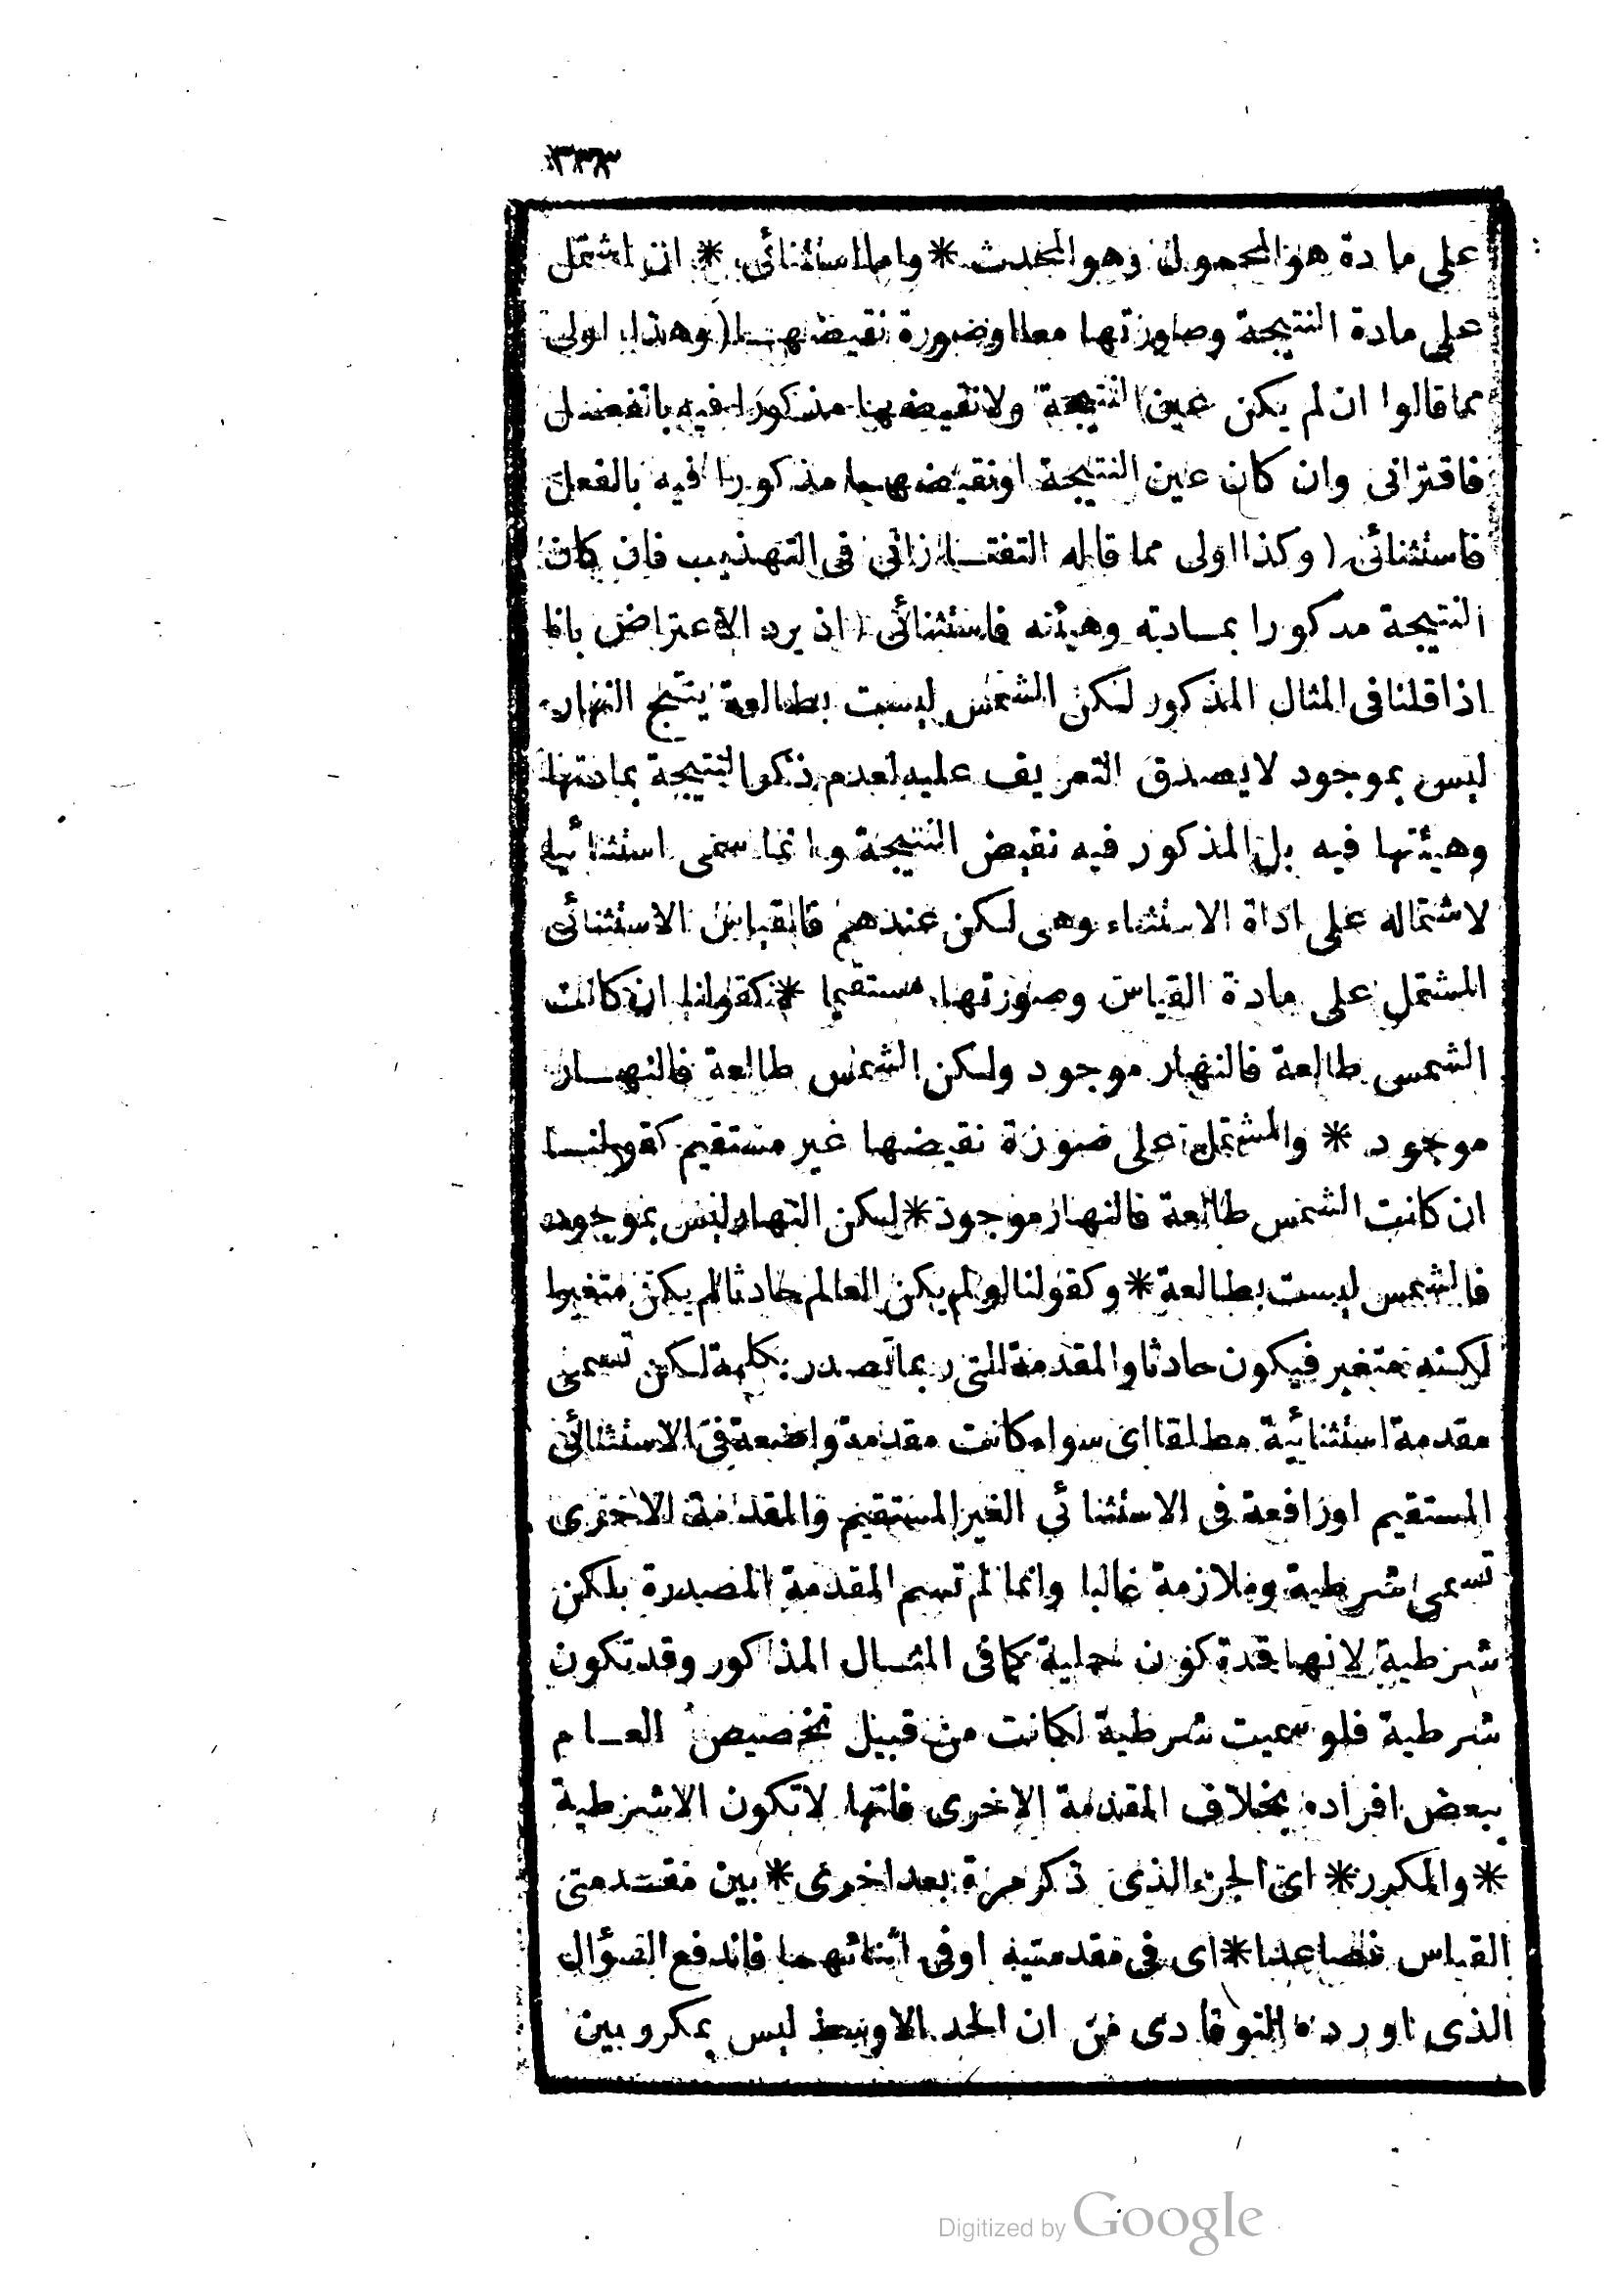 ٣٣٣
على مادة هو المحمول وهو المحدث * واما استثنائى * ان اشتمل
على مادة النتيجة وصورتها معا او صورة نقيضهـا (وهذا اولى
مما قالوا ان لم يكن عين النتيجة ولا نقيضها مذكورا فيه بالفعـل
فاقترانى وان كان عين النتيجة او نقيضهـا مذكورا فيه بالفعل
فاستثنائى (وكذا اولى مما قاله التفتـازانى فى التهذيب فان كان
النتيجة مذكورا بمـادته وهيئته فاستثنائى (اذ يرد الاعتراض بانا
اذا قلنا فى المثال المذكور لكن الشمس ليست بطالعة ينتج النهار
ليس بموجود لا يصدق التعريف عليه لعدم ذكر النتيجة بمادتها
وهيئتها فيه بل المذكور فيه نقيض النتيجة وانما سمى استثنائيا
لاشتماله على اداة الاستثناء وهى لكن عندهم فالقياس الاستثنائى
المشتمل على مادة القياس وصورتها مستقيما * كقولنا ان كانت
الشمس طالعة فالنهار موجود ولكن الشمس طالعة فالنهـار
موجود * والمشتمل على صورة نقيضها غير مستقيم كقولنـا
ان كانت الشمس طالعة فالنهار موجود * لكن النهار ليس بموجود
فالشمس ليست بطالعة * وكقولنا لو لم يكن العالم حادثا لم يكن متغيرا
لكنه متغير فيكون حادثا والمقدمة التى ربما تصدر بكلمة لكن تسمى
مقدمة استثنائية مطلقا اى سواء كانت مقدمة واضعة فى الاستثنائى
المستقيم او رافعة فى الاستثنائى الغير المستقيم والمقدمة الاخرى
تسمى شرطية وملازمة غالبا وانما لم تسم المقدمة المصدرة بلكن
شرطية لانها قد تكون حملية كما فى المثـال المذكور وقد تكون
شرطية فلو سميت شرطية لكانت من قبيل تخصيص العـام
ببعض افراده بخلاف المقدمة الاخرى فانها لا تكون الا شرطية
* والمكرر * اى الجزء الذى ذكر مرة بعد اخرى * بين مقـدمتى
القياس فصاعدا * اى فى مقدمتيه او فى اثنائهـما فاندفع السؤال
الذى اورده التوقادى من ان الحد الاوسط ليس بمكرر بين
Digitized by Google